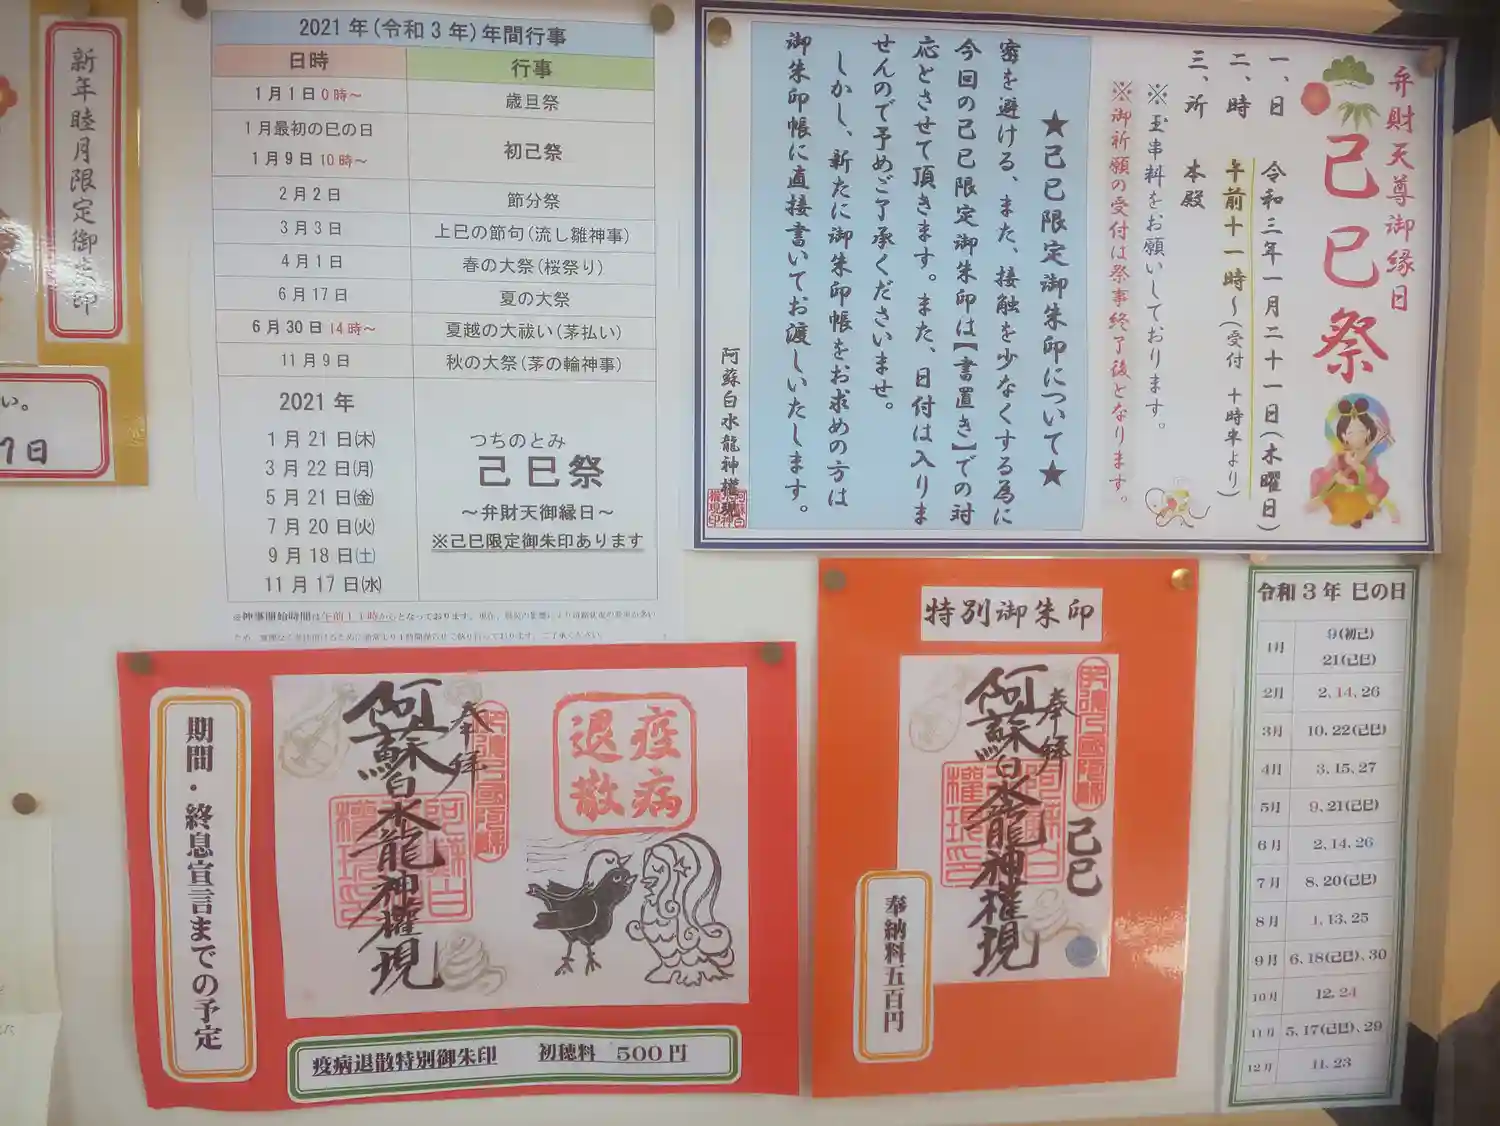 新年睦月限定御朱印
い。
2021年(令和3年)年間行事
日時 行事
1月1日0時～ 歳旦祭
1月最初の巳の日
1月9日10時～ 初己祭
2月2日 節分祭
3月3日 上巳の節句(流し雛神事)
4月1日 春の大祭(桜祭り)
6月17日 夏の大祭
6月30日14時～ 夏越の大祓い(茅払い)
11月9日 秋の大祭(茅の輪神事)
2021年
1月21日(木)
3月22日(月)
5月21日(金)
7月20日(火)
9月18日(土)
11月17日(水)
つちのとみ
己巳祭
～弁財天御縁日～
※己巳限定御朱印あります
※神事開始時間は午前11時からとなっております。
弁財天尊御縁日
己巳祭
一、日 令和三年一月二十一日(木曜日)
二、時 午前十一時～(受付 十時半より)
三、所 本殿
※玉串料をお願いしております。
※御祈願の受付は祭事終了後となります。
★己巳限定御朱印について★
密を避ける、また、接触を少なくする為に
今回の己巳限定御朱印は【書置き】での対
応とさせて頂きます。また、日付は入りま
せんので予めご了承くださいませ。
しかし、新たに御朱印帳をお求めの方は
御朱印帳に直接書いてお渡しいたします。
阿蘇白水龍神權現
期間・終息宣言までの予定
奉拝
阿蘇白水龍神權現
疫病
退散
疫病退散特別御朱印 初穂料 500円
特別御朱印
奉拝
阿蘇白水龍神權現
己巳
奉納料五百円
令和3年 巳の日
1月 9(初己)
21(己巳)
2月 2,14,26
3月 10,22(己巳)
4月 3,15,27
5月 9,21(己巳)
6月 2,14,26
7月 8,20(己巳)
8月 1,13,25
9月 6,18(己巳),30
10月 12,24
11月 5,17(己巳),29
12月 11,23